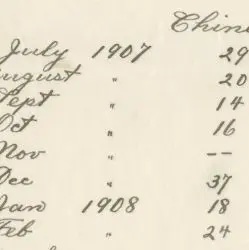 Chin
July 1907 29
August " 20
Sept " 14
Oct " 16
Nov " --
Dec " 37
Jan 1908 18
Feb " 24